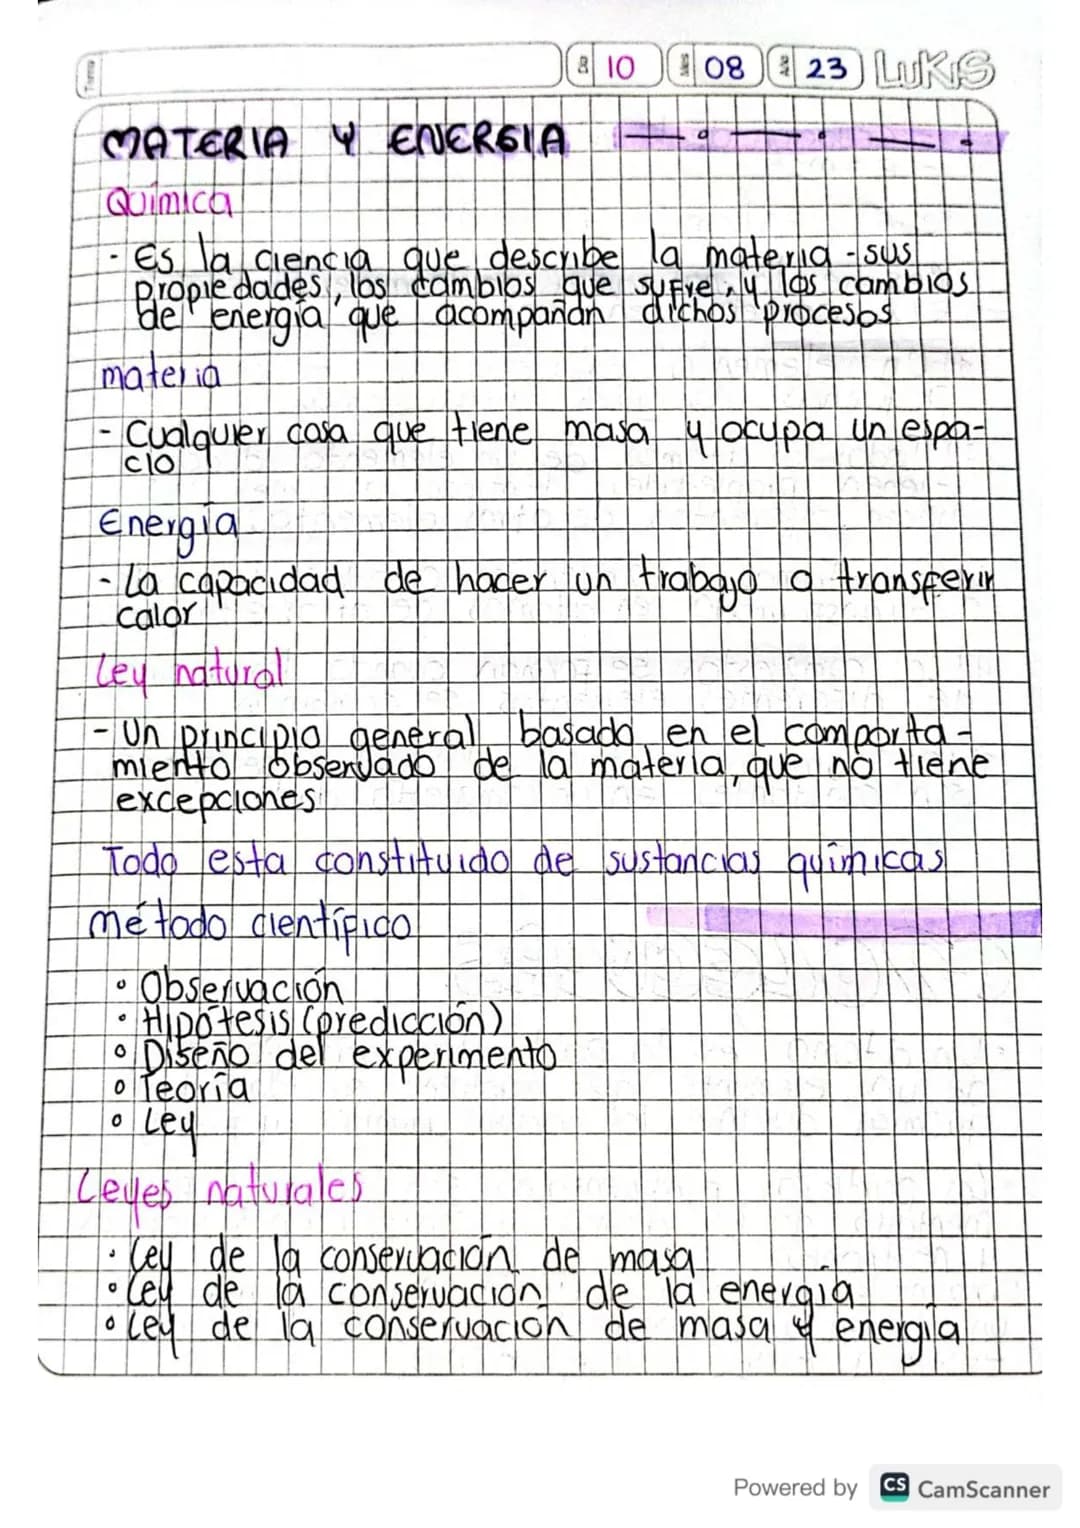 Tema
Día 10 Mes 08 Año 23 LUKIS
MATERIA Y ENERGIA
Química
- Es la ciencia que describe la materia - sus
propiedades, los cambios que sufre, y los cambios
de energía que acompañan dichos procesos
materia
- Cualquier cosa que tiene masa y ocupa un espa-
cio
Energía
- La capacidad de hacer un trabajo o transferir
calor
Ley natural
- Un principio general basado en el comporta-
miento observado de la materia, que no tiene
excepciones
Todo esta constituido de sustancias químicas
método científico
• Observación
• Hipótesis (predicción)
• Diseño del experimento
• Teoría
• Ley
Leyes naturales
• Ley de la conservación de masa
• Ley de la conservación de la energía
• Ley de la conservación de masa y energía
Powered by CS CamScanner